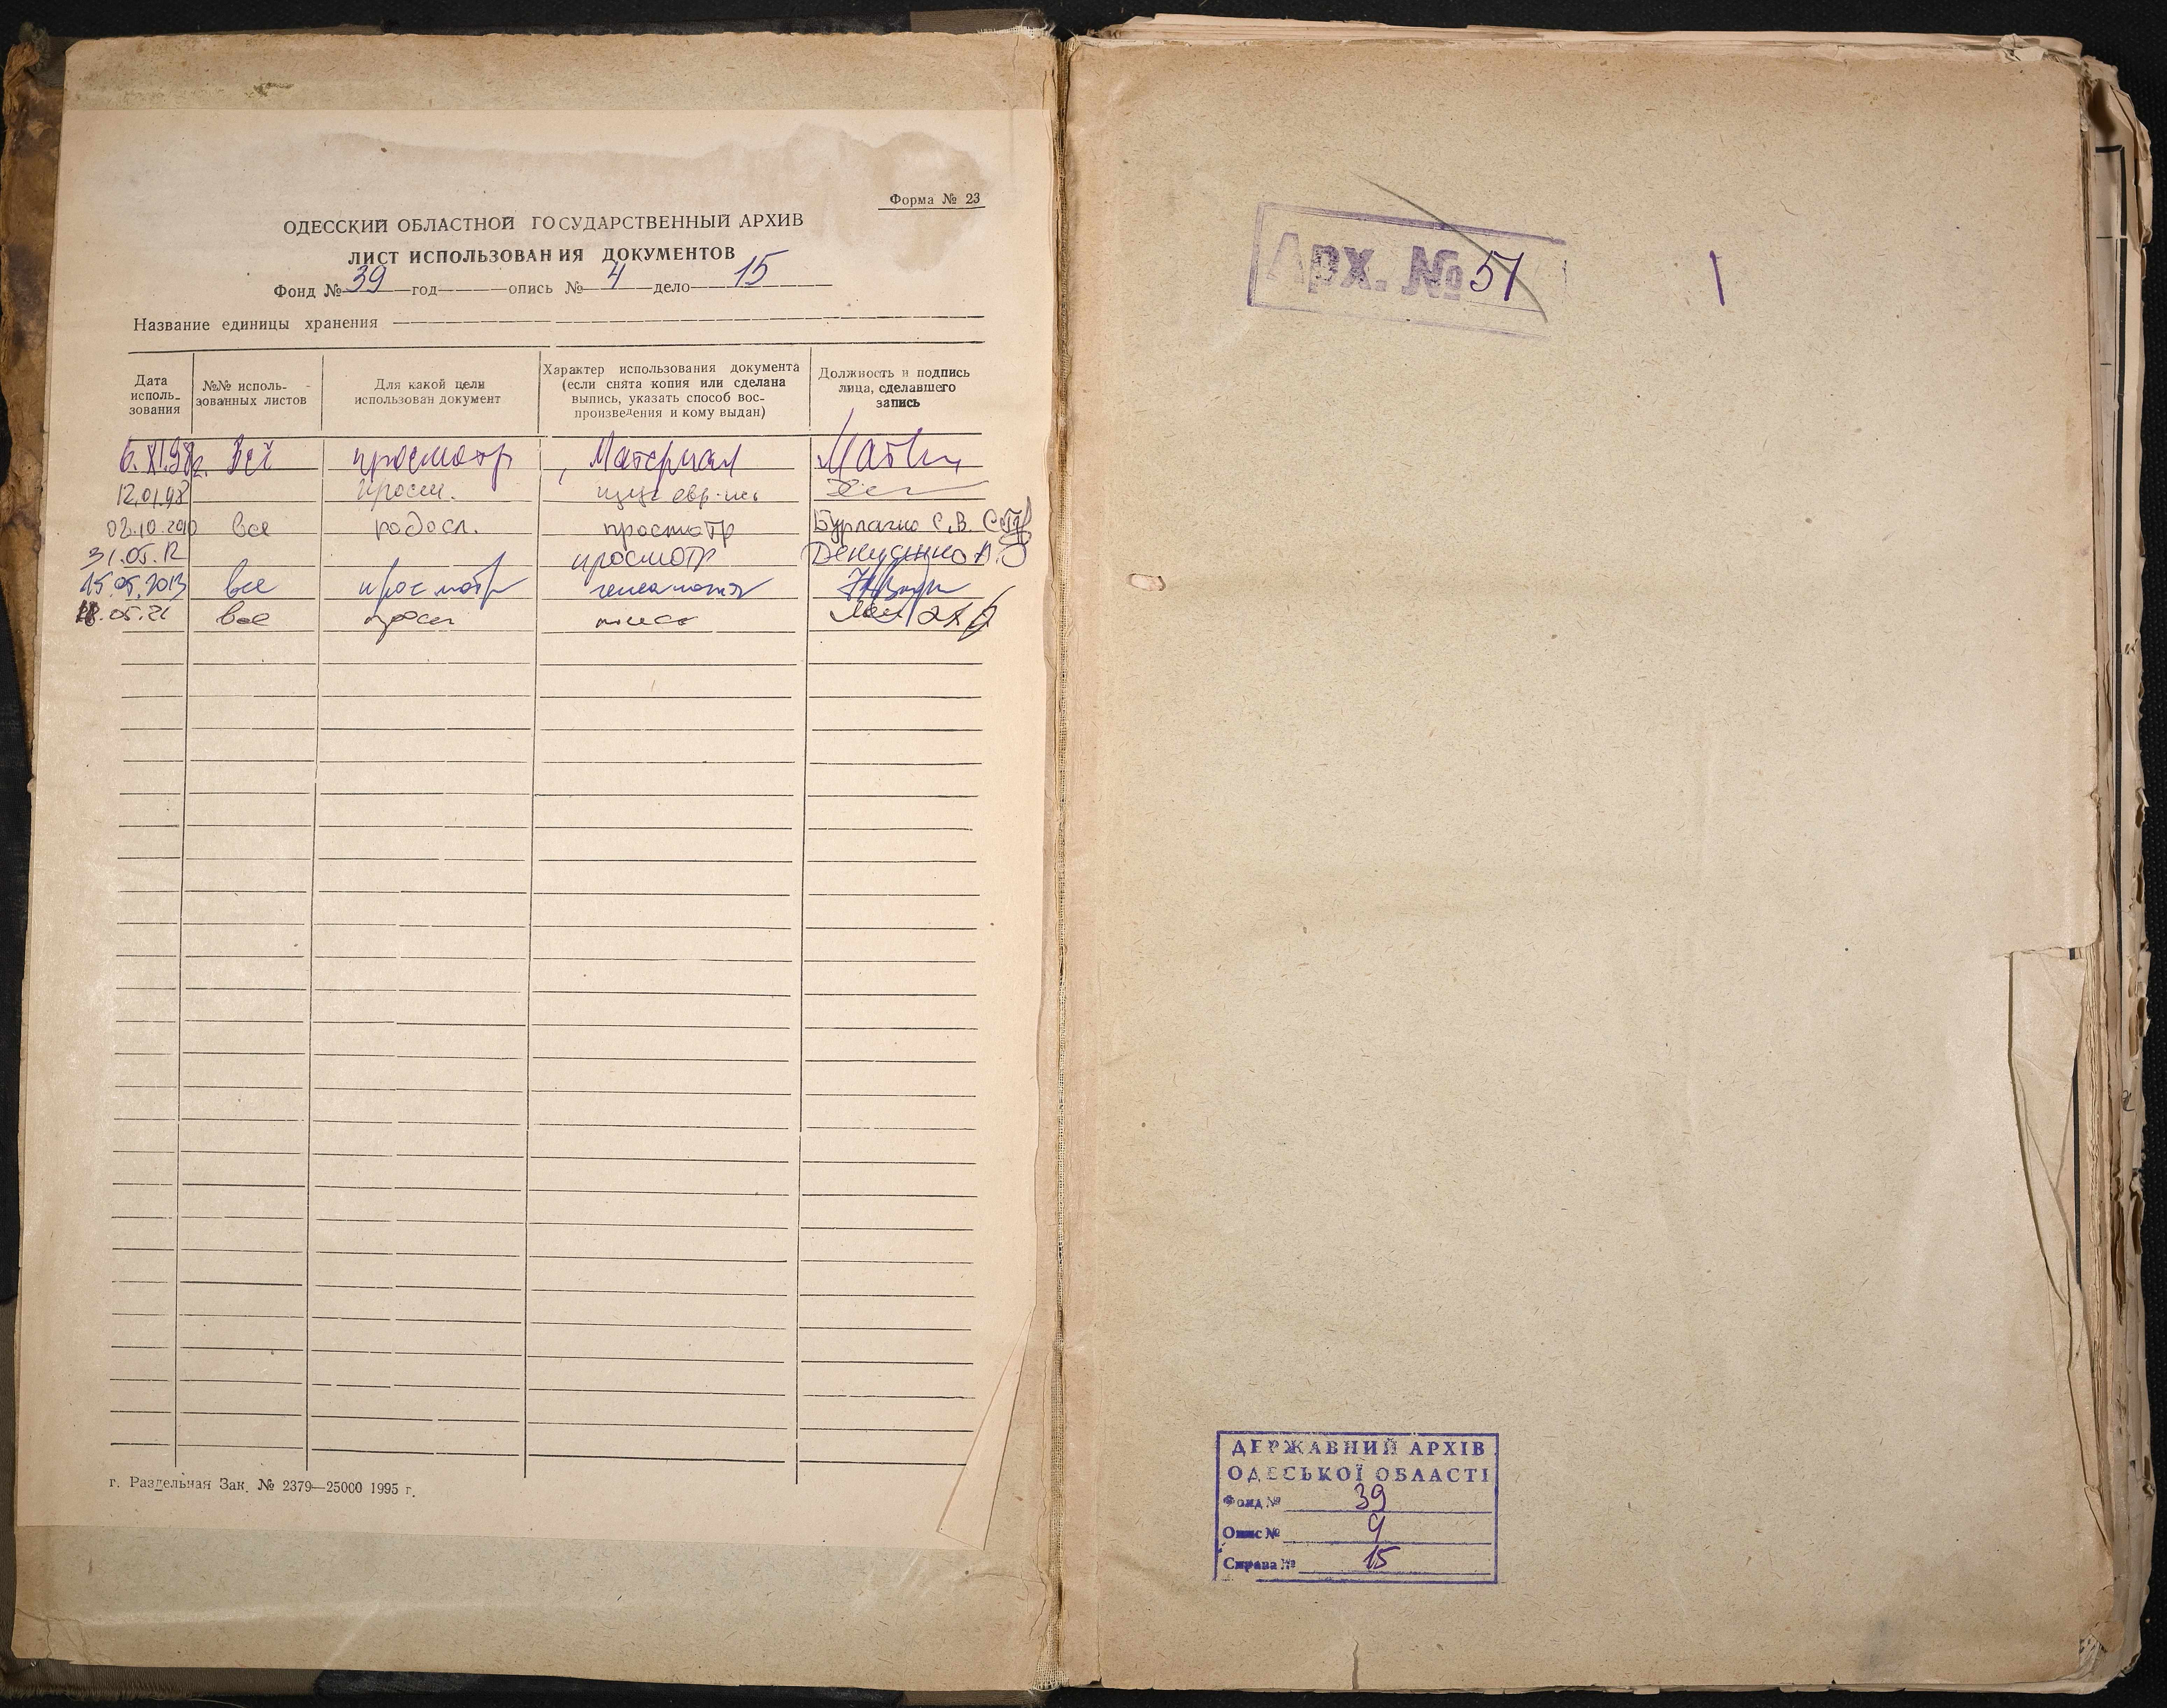 Форма № 23
ОДЕССКИЙ ОБЛАСТНОЙ ГОСУДАРСТВЕННЫЙ АРХИВ
ЛИСТ ИСПОЛЬЗОВАНИЯ ДОКУМЕНТОВ
Фонд № 39 год опись № 4 дело 15
Название единицы хранения
Дата исполь-зования
№№ исполь-зованных листов
Для какой цели использован документ
Характер использования документа (если снята копия или сделана выпись, указать способ вос-произведения и кому выдан)
Должность и подпись лица, сделавшего запись
просмотр Материал
12.01.98 просм.
02.10.2010 все родосл. просмотр
31.05.12 просмотр
15.05.2013 все просмотр генеалогия
.05.21 все просм
г. Раздельная Зак. № 2379—25000 1995 г.
Арх. № 51
1
ДЕРЖАВНИЙ АРХІВ
ОДЕСЬКОЇ ОБЛАСТІ
Фонд № 39
Опис № 4
Справа № 15